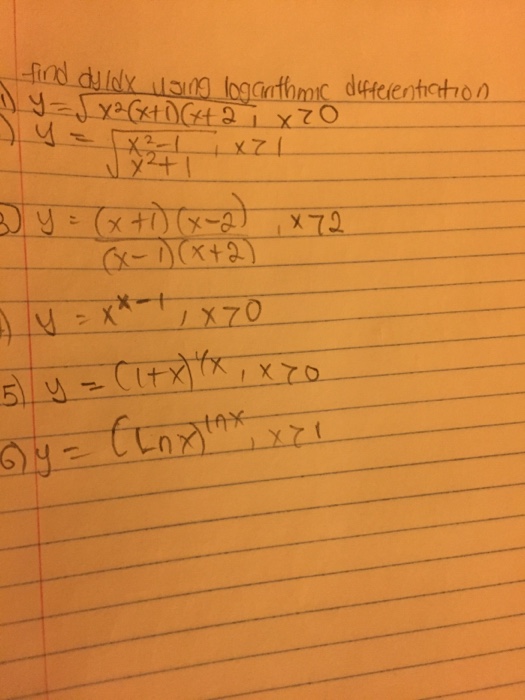 find dy/dx using logarithmic differentiation
1) y = √x²(x+1)(x+2 , x>0
) y = √x²-1/x²+1 , x>1
3) y = (x+1)(x-2)/(x-1)(x+2) , x>2
) y = x^x-1 , x>0
5) y = (1+x)^1/x , x>0
6) y = (Lnx)^lnx , x>1